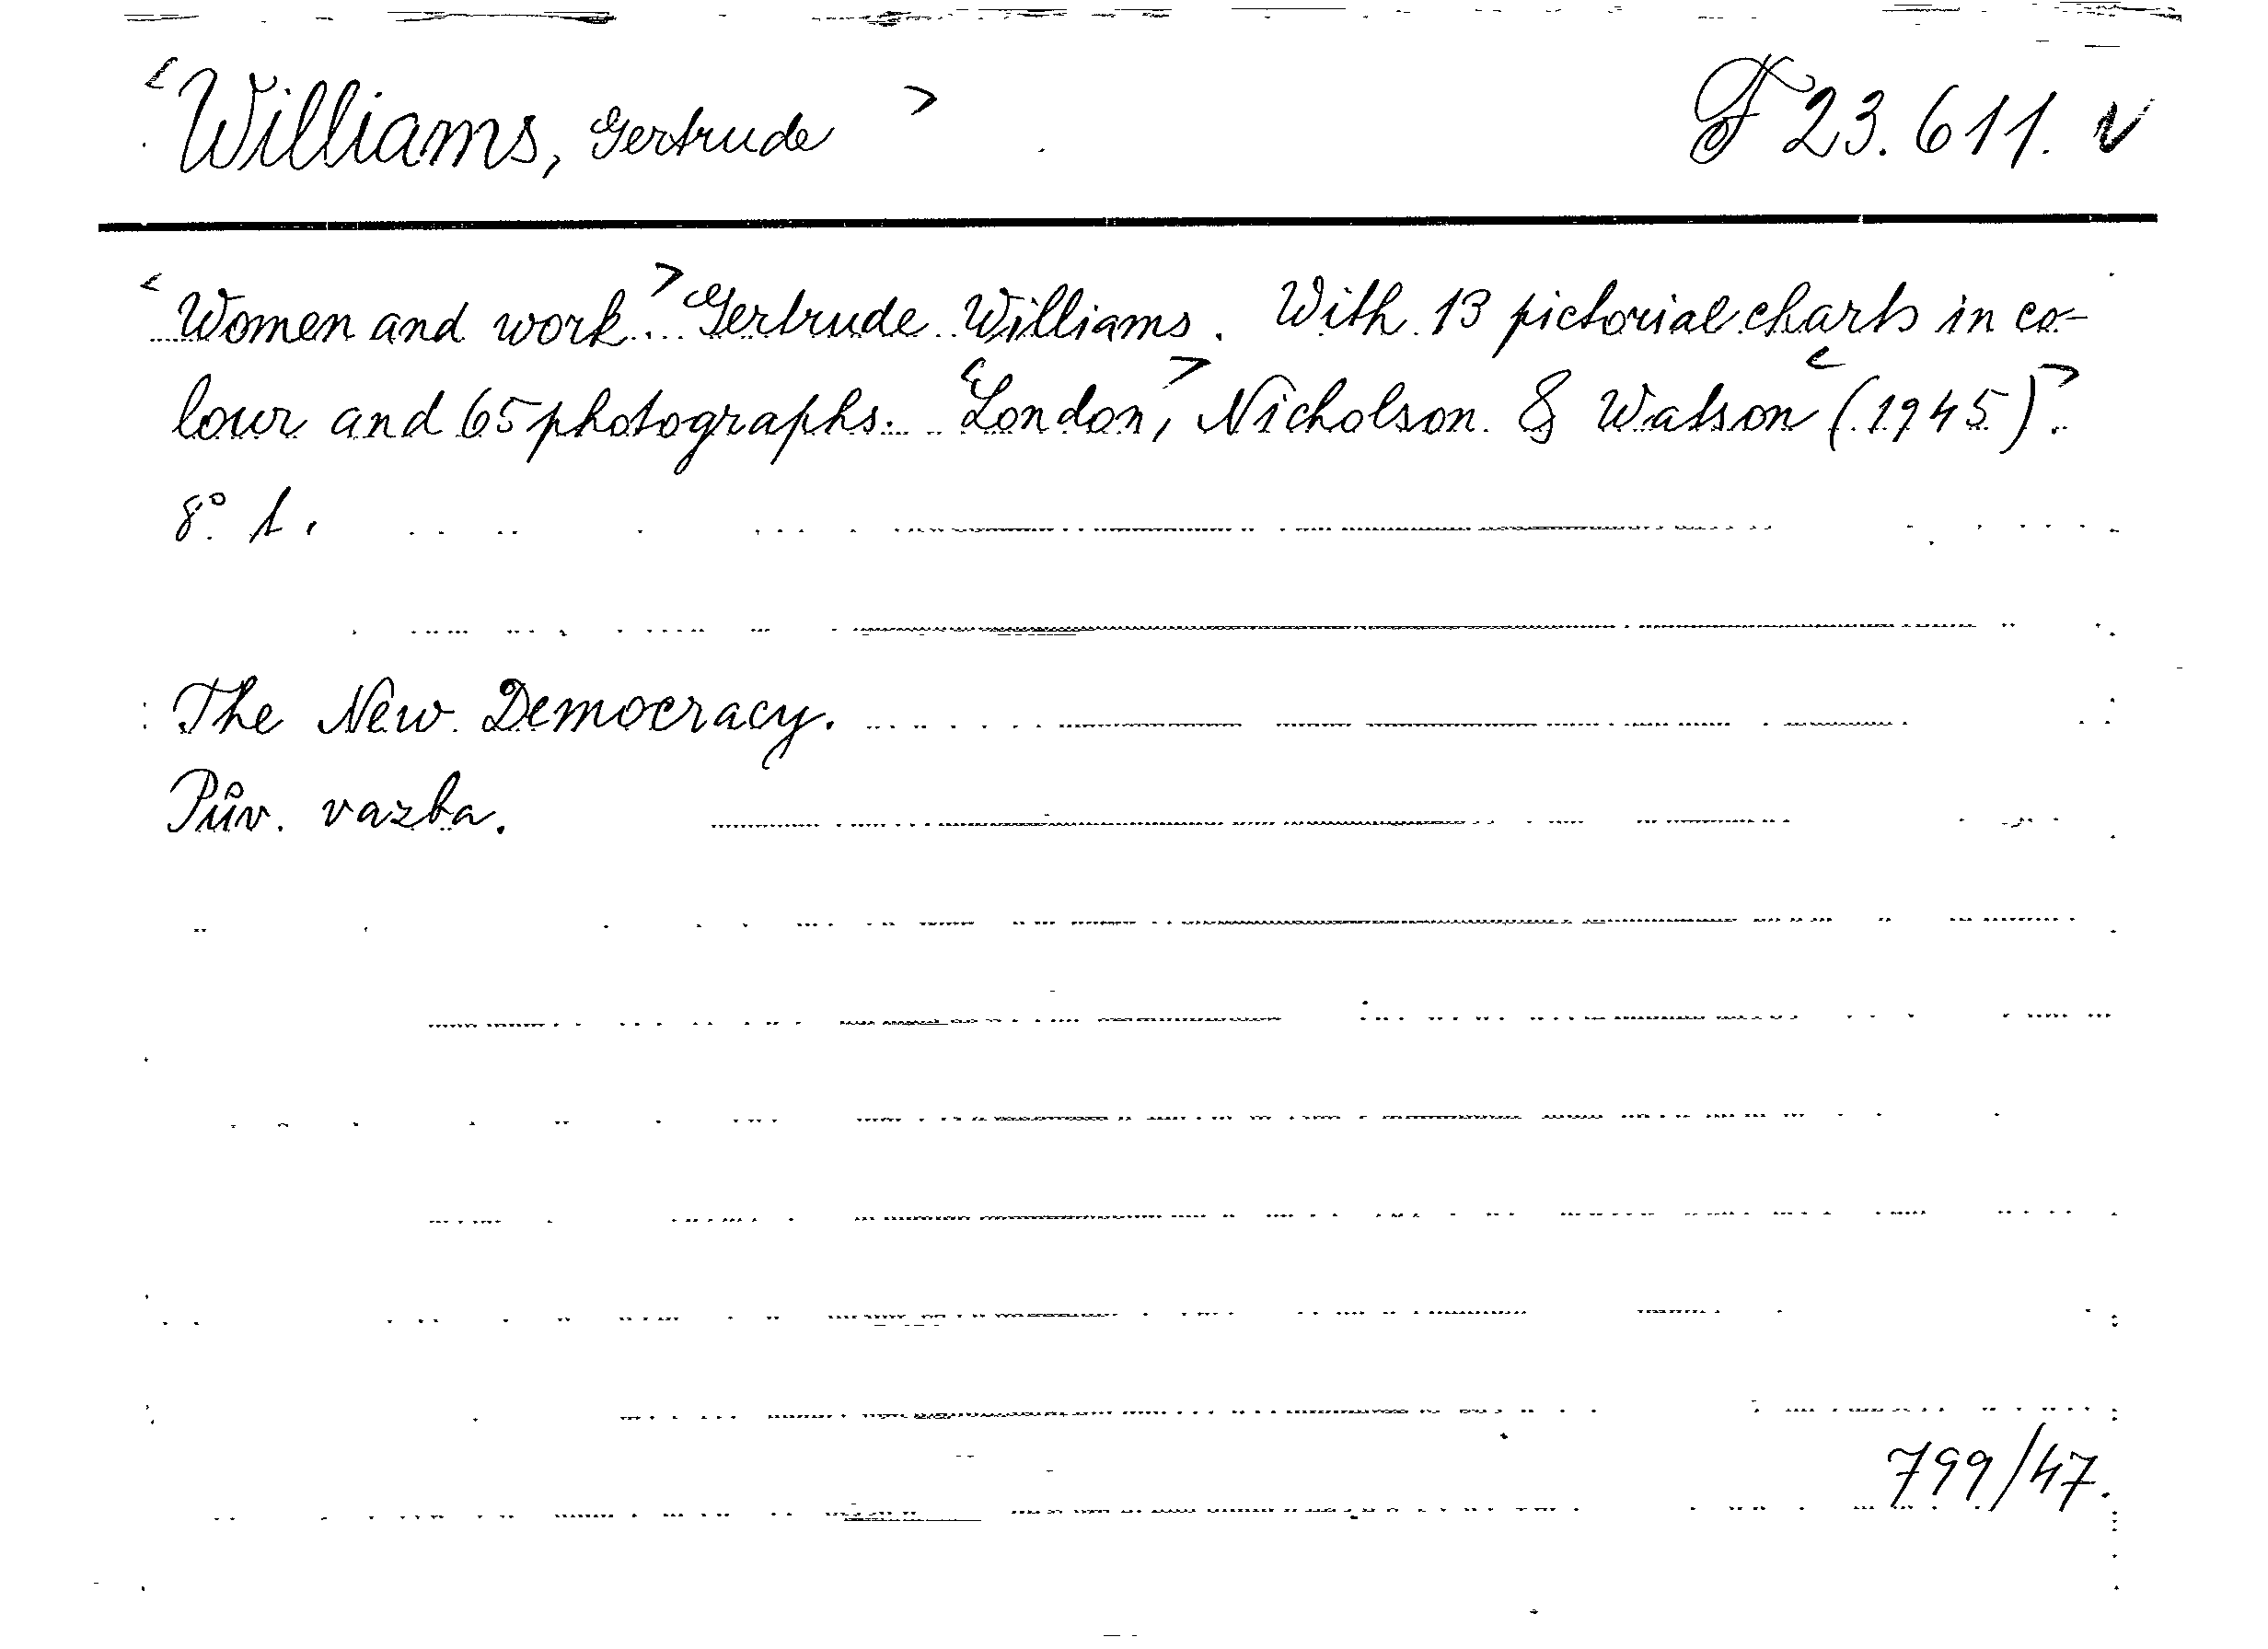 <Williams, Gertrude> F 23.611. v
<Women and work.> Gertrude Williams. With 13 pictorial charts in co-
lour and 65 photographs. <London,> Nicholson & Watson <(1945)>.
8°. t.
The New Democracy.
Pův. vazba.
799/47.